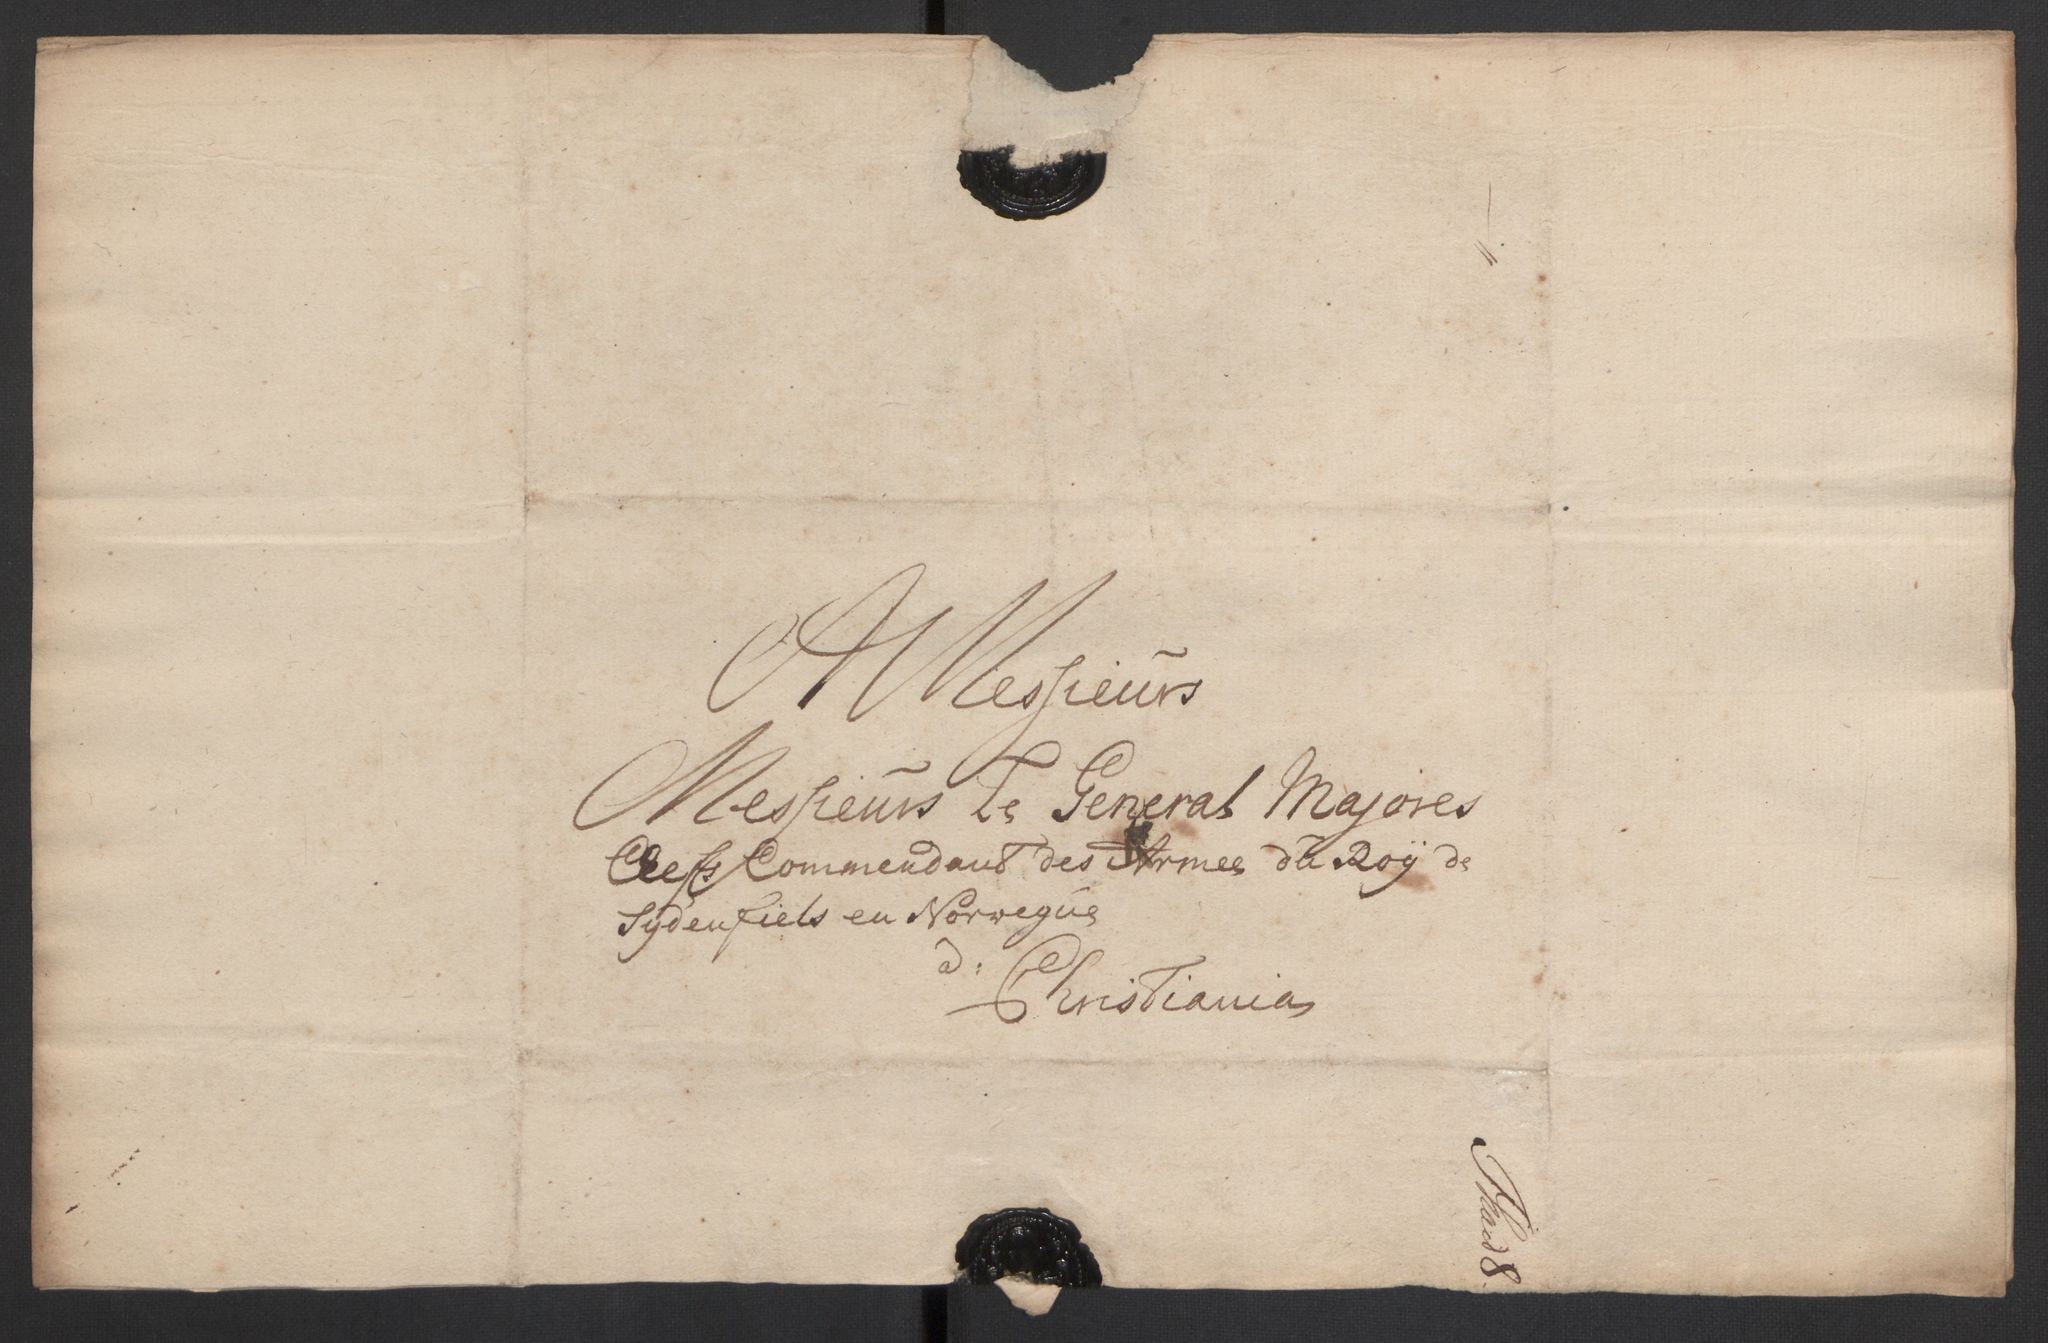 A Messieurs
Messieurs Le General Majores
Cheffs Commendant des Armee dū Roÿ de
Sydenfiels en Norwegūe
à:
Christiania